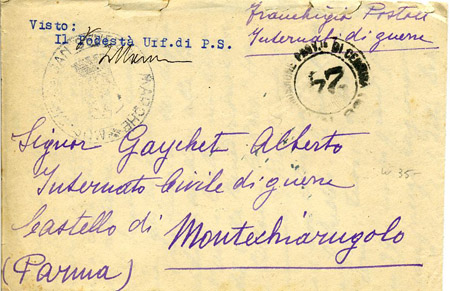 Visto:
Il Podestà Urf.di P.S.
Franchigia Postale
Internati di guerra
COMMISSIONE PROV.LE DI CENSURA
24
MARCHE
Signor Gaychet Alberto
Internato Civile di guerra
Castello di Montechiarugolo
(Parma)
35-